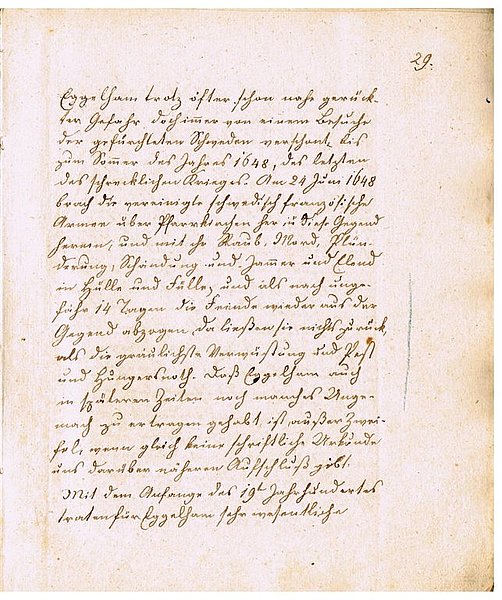 29.
Eggelham trotz öfter schon nahe gerück-
ter Gefahr doch immer von einem Besuche
der gefürchteten Schweden verschont, bis
zum Sommer des Jahres 1648, des letzten
des schrecklichen Krieges. Am 24 Juni 1648
brach die vereinigte schwedisch französische
Armee über Pfarrkirchen her in diese Gegend
herein, und mit ihr Raub, Mord, Plün-
derung, Schändung und Jammer und Elend
in Hülle und Fülle, und als nach unge-
fähr 14 Tagen die Feinde wieder aus der
Gegend abzogen, da ließen sie nichts zurück,
als die gräulichste Verwüstung und Pest
und Hungersnoth. Daß Eggelham auch
in späteren Zeiten noch manches Unge-
mach zu ertragen gehabt, ist außer Zwei-
fel, wenn gleich keine schriftliche Urkunde
uns darüber näheren Aufschluß gibt.
Mit dem Anfange des 19t Jahrhundertes
traten für Eggelham sehr wesentliche